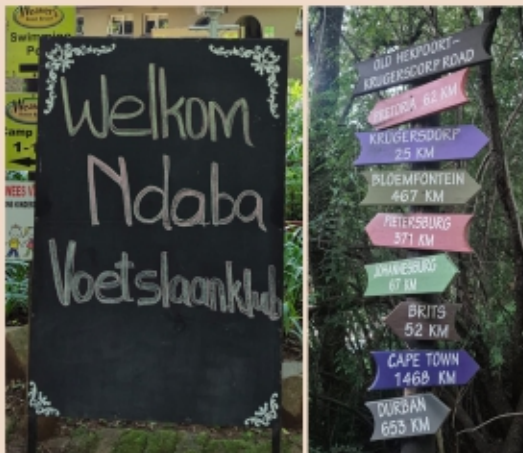 Weaver's
Swimming
Po
Camp
1-1
Welkom
Ndaba
Voetslaanklub
OLD HEKPOORT-
KRUGERSDORP ROAD
PRETORIA 62 KM
KRUGERSDORP
25 KM
BLOEMFONTEIN
467 KM
PIETERSBURG
371 KM
JOHANNESBURG
67 KM
BRITS
52 KM
CAPE TOWN
1468 KM
DURBAN
653 KM